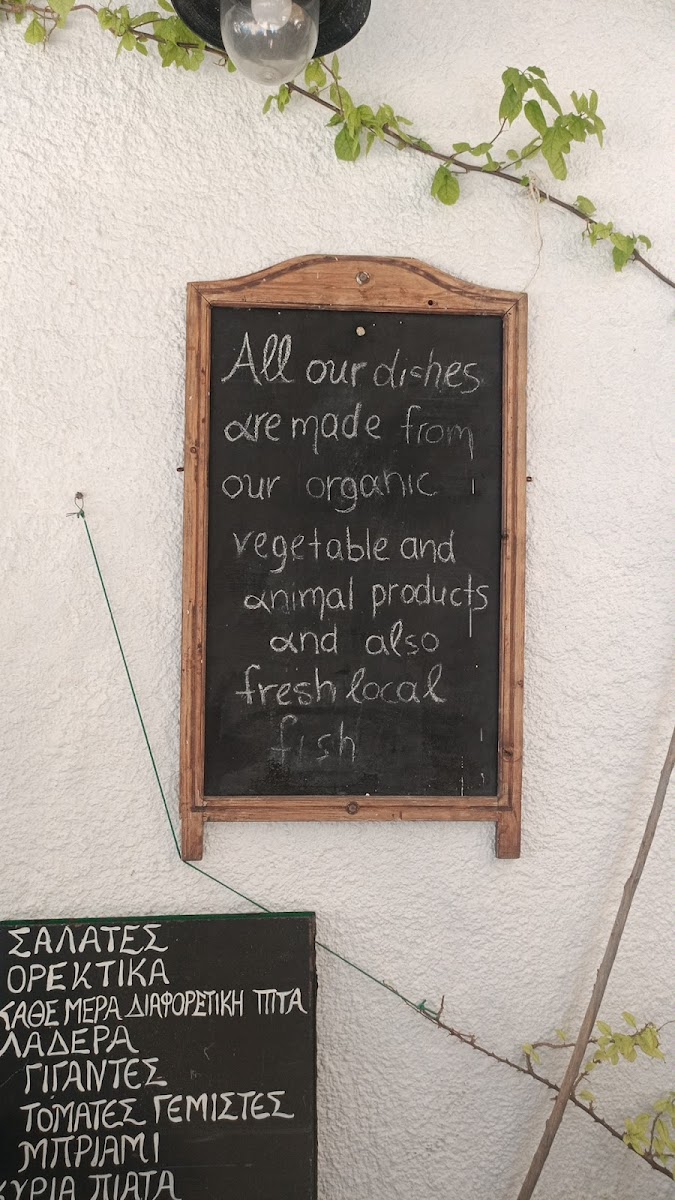 All our dishes
are made from
our organic
vegetable and
animal products
and also
fresh local
fish
ΣΑΛΑΤΕΣ
ΟΡΕΚΤΙΚΑ
ΚΑΘΕ ΜΕΡΑ ΔΙΑΦΟΡΕΤΙΚΗ ΠΙΤΑ
ΛΑΔΕΡΑ
ΓΙΓΑΝΤΕΣ
ΤΟΜΑΤΕΣ ΓΕΜΙΣΤΕΣ
ΜΠΡΙΑΜΙ
ΚΥΡΙΑ ΠΙΑΤΑ